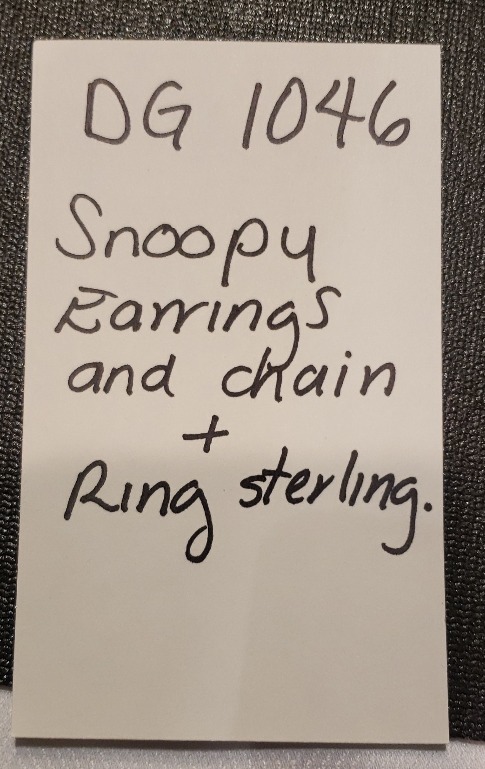 DG 1046
Snoopy
Earrings
and chain
+
Ring sterling.